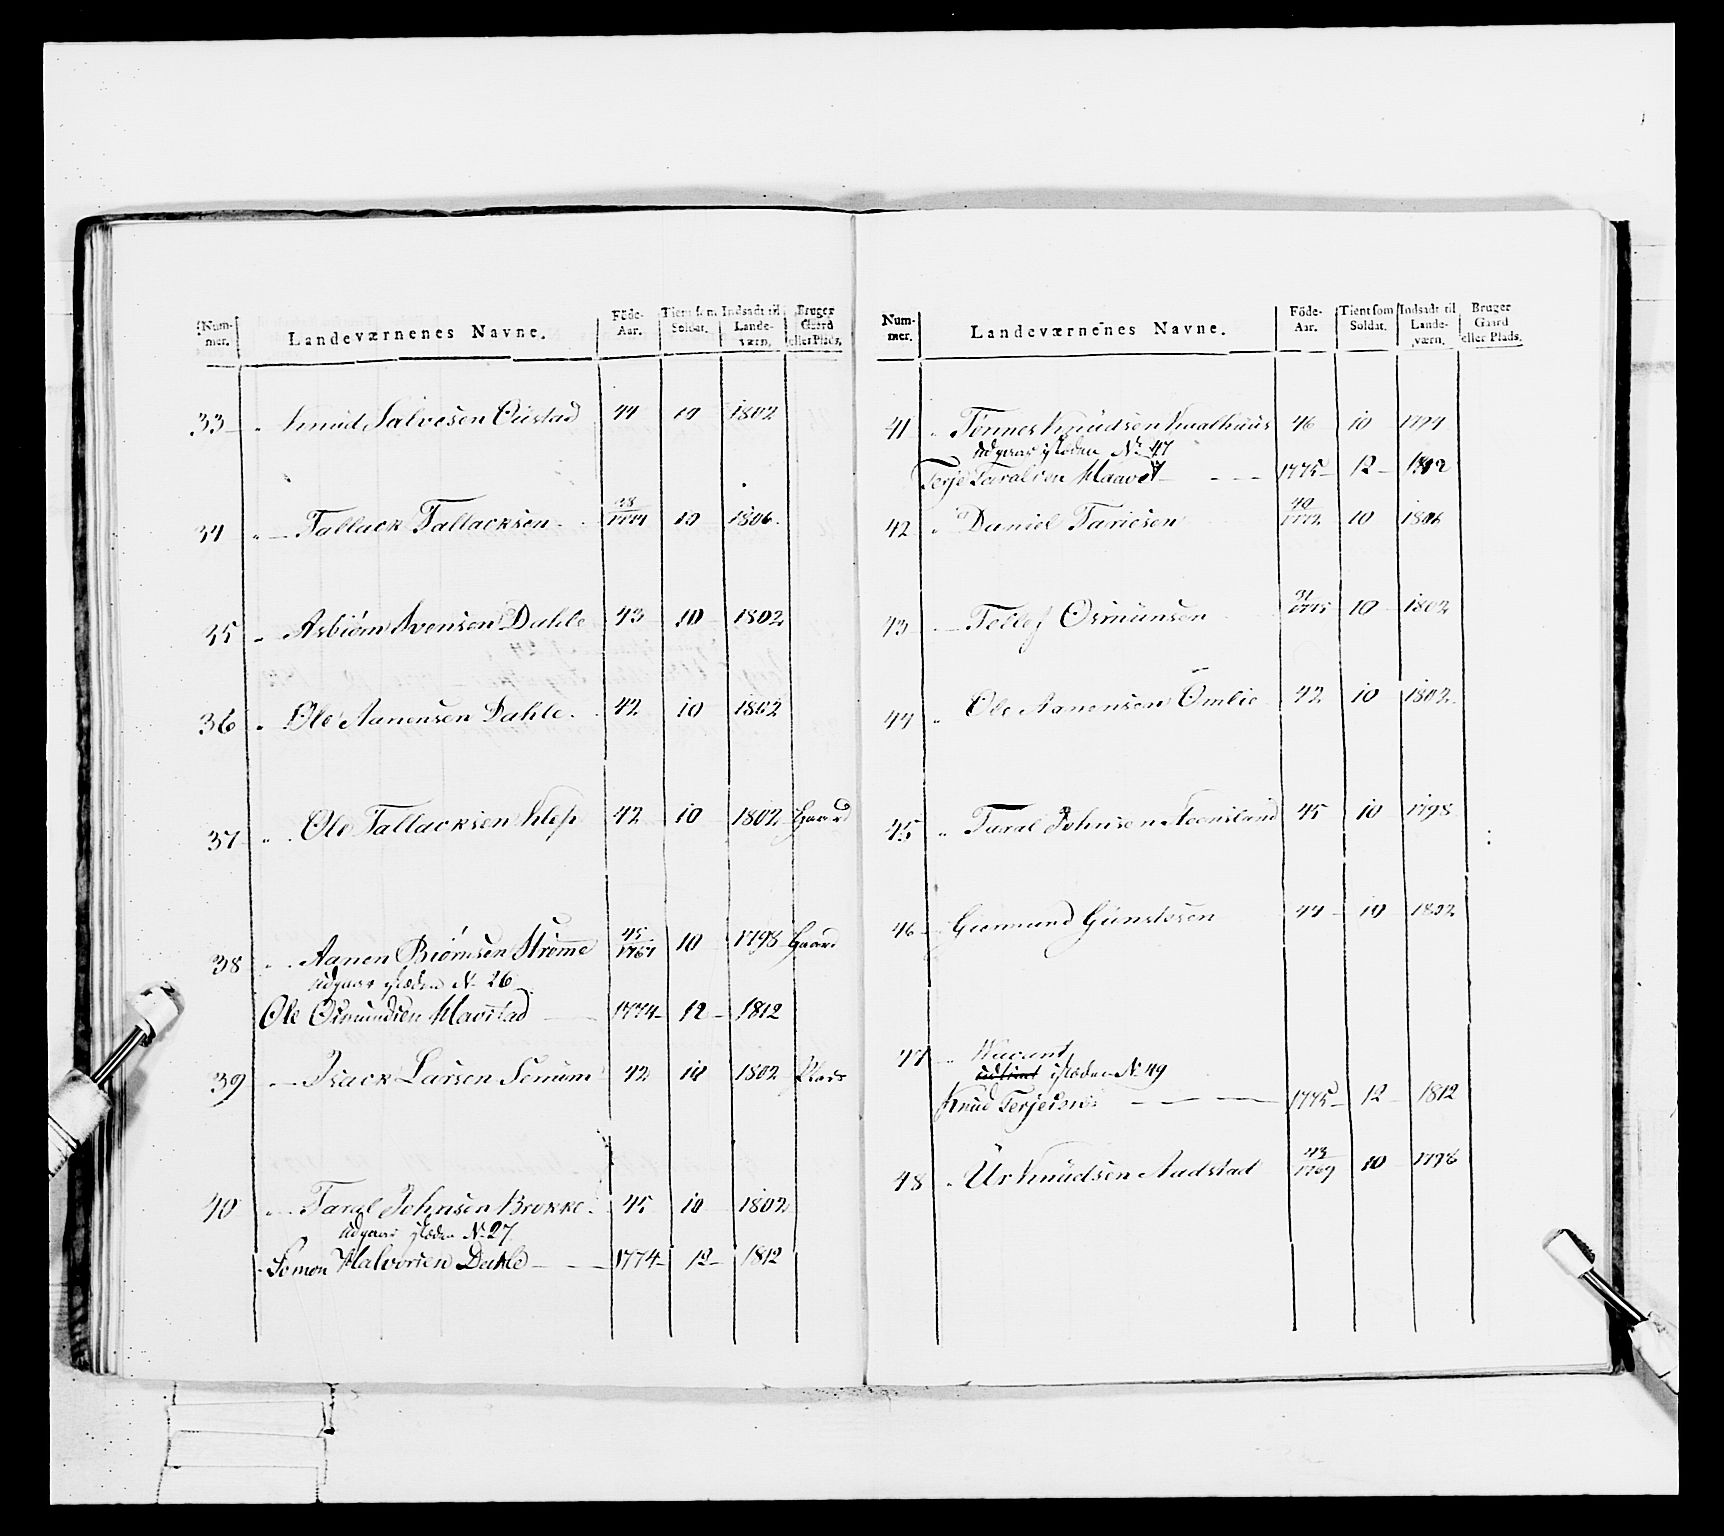 Num-mer. Landeværnenes Navne. Föde-Aar. Tient som Soldat. Indsadt til Lande-værn. Bruger Gaard eller Plads.
33 " Knud Salvesen Oustad 44 10 1802
34 " Tallack Tallacksen 38/1774 10 1806
35 " Asbiörn Svensen Dahle 43 10 1802
36 " Ole Aanensen Dahle 42 10 1802
37 " Ole Tallacksen Klep 42 10 1802 Gaard
38 " Aanen Biörnsen Strømme 45/1767 10 1798 Gaard
udgaar isteden No 26
Ole Osmundsen Mavstad 1774 12 1812
39 Isack Larsen Senum 42 10 1802 Plads
40 Taral Johnsen Brokke 45 10 1802
udgaar isteden No 27
Semon Halvorsen Dahle 1774 12 1812
Num-mer. Landeværnenes Navne. Föde-Aar. Tient som Soldat. Indsadt til Lande-værn. Bruger Gaard eller Plads.
41 " Tønnes Knudsen 46 10 1794
udgaar isteden No 47
Terje Toralsen 1775 12 1812
42 " Daniel Tariesen 40/1772 10 1806
43 Tellef Osmunsen 10 1802
44 " Ole Aanensen Omlie 42 10 1802
45 " Taral Johnsen 45 10 1798
46 Gunmund Gunstesen 44 10 1802
47 " Vacant
isteden No 49
Knud Terjesen 1775 12 1812
48 " Ur Knudsen Aadstad 43/1769 10 1796